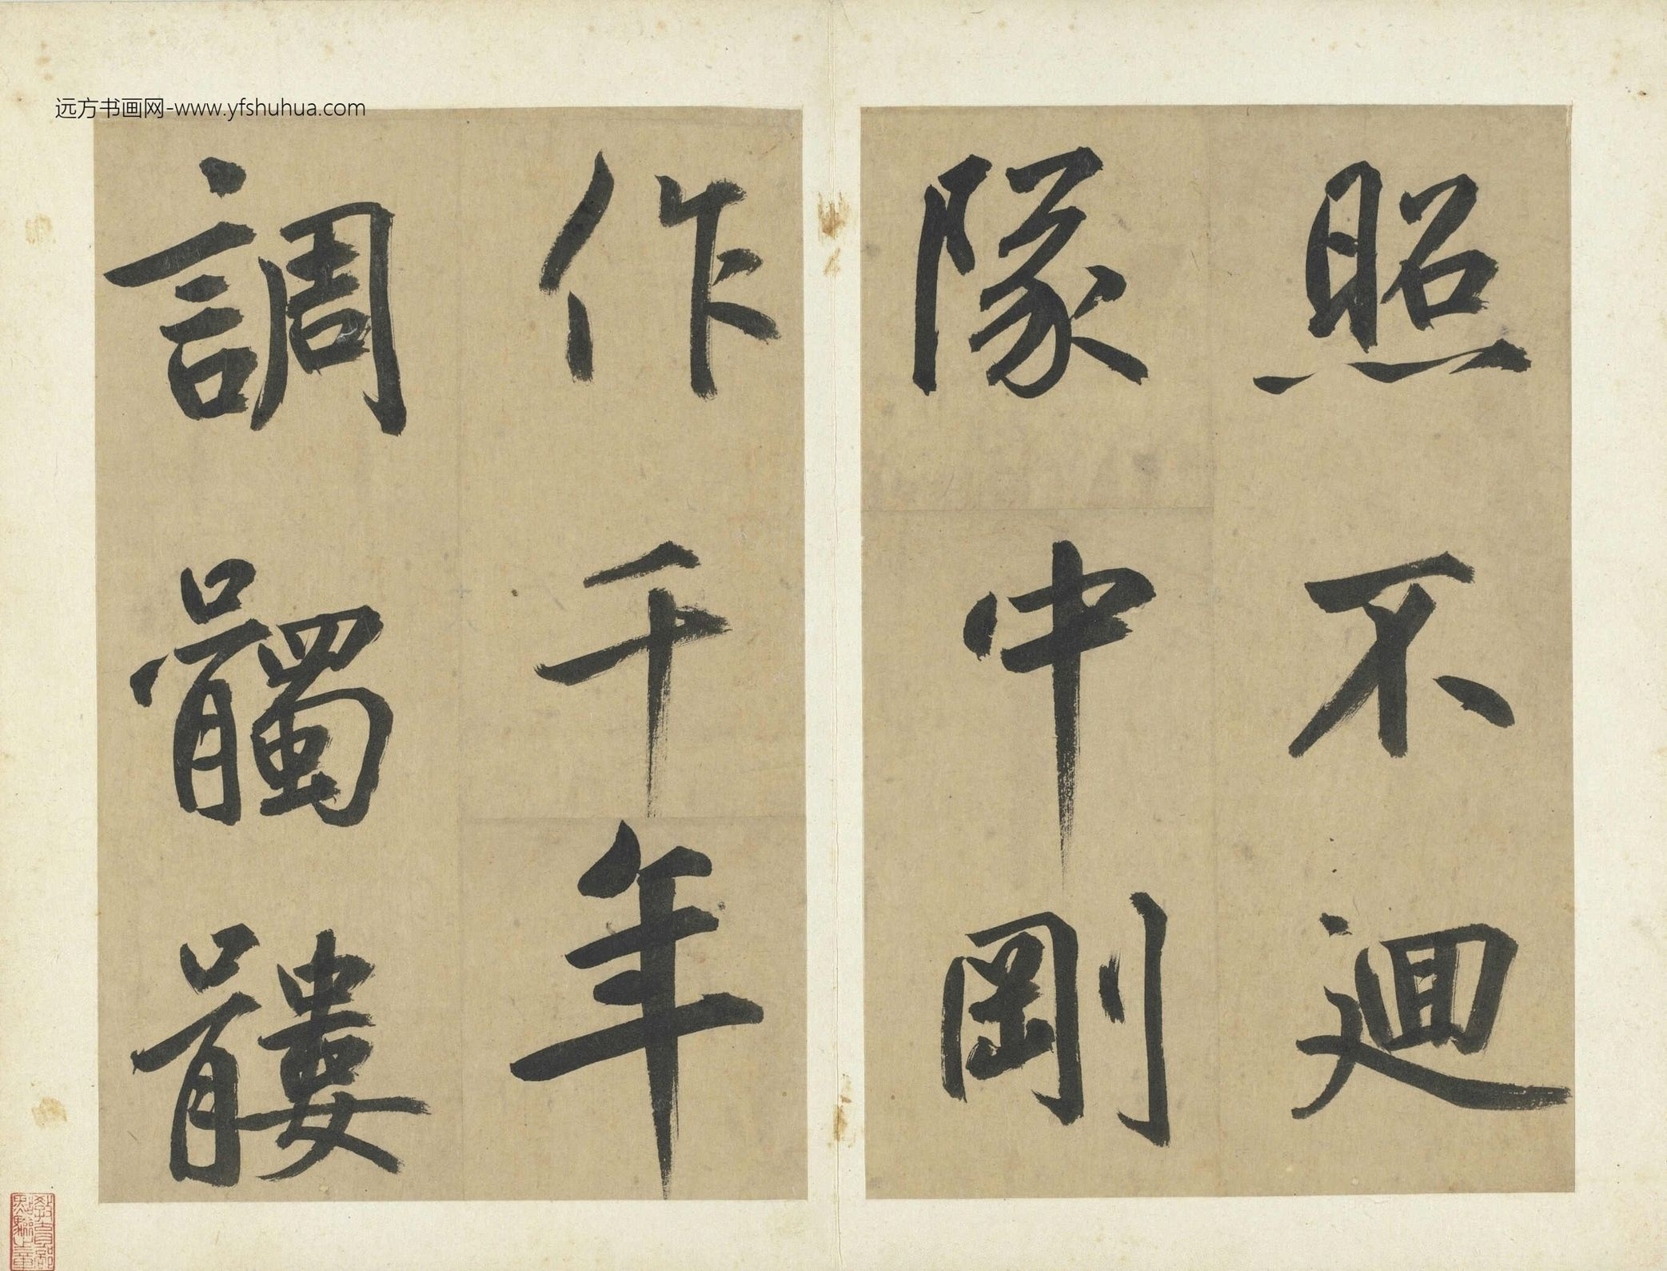 远方书画网-www.yfshuhua.com
照不迴
隊中剛
作千年
調髑髏